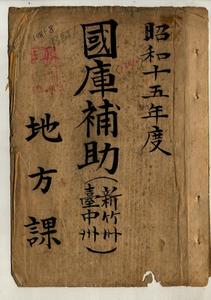 昭和十五年度
國庫補助(新竹州
臺中州)
地方課